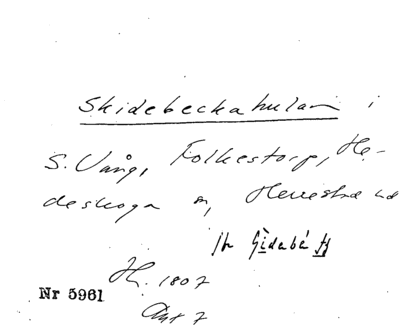 Skidebeckahulan i
S. Vång, Folkestorp, He-
deskoga sn, Herrestad hd
Jfr Gìdabá
H. 1807
Akt 7
Nr 5961